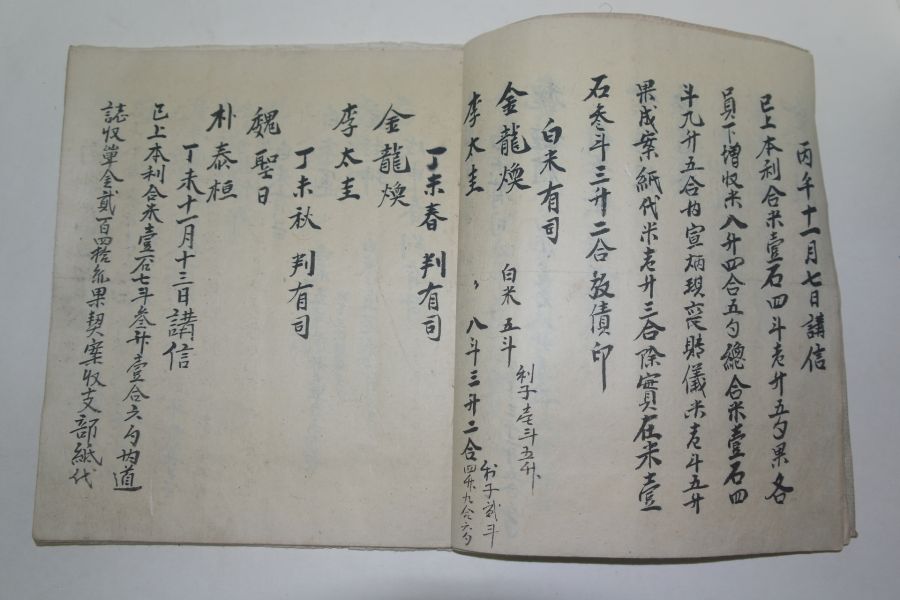 丙午十一月七日講信
已上本利合米壹石四斗壱升五勺果各
員下增収米八升四合五勺總合米壹石四
斗九升五合內宣炳現寔賻儀米壱斗五升
果成案紙代米壱升三合除實在米壹
石叁斗三升二合放債印
白米有司
金龍煥 白米五斗 利子壱斗五升
李太圭 〃 八斗三升二合 利子貳斗四升九合六勺
丁未春 判有司
金龍煥
李太圭
丁未秋 判有司
魏聖日
朴泰桓
丁未十一月十三日講信
已上本利合米壹石七斗叁升壹合六勺內道
誌収單金貳百四拾兩果契案収支部紙代